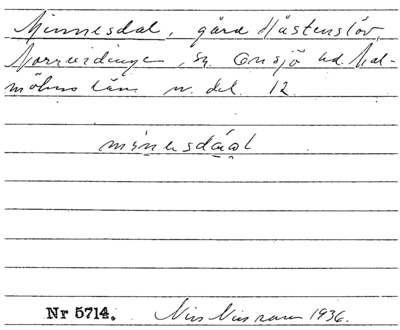 Minnesdal, gård Håstenslöv,
Norrvidinge, sn. Onsjö hd. Mal-
möhus län n. del. 12
minesdáal
Nr 5714. Nils Nilsson 1936.